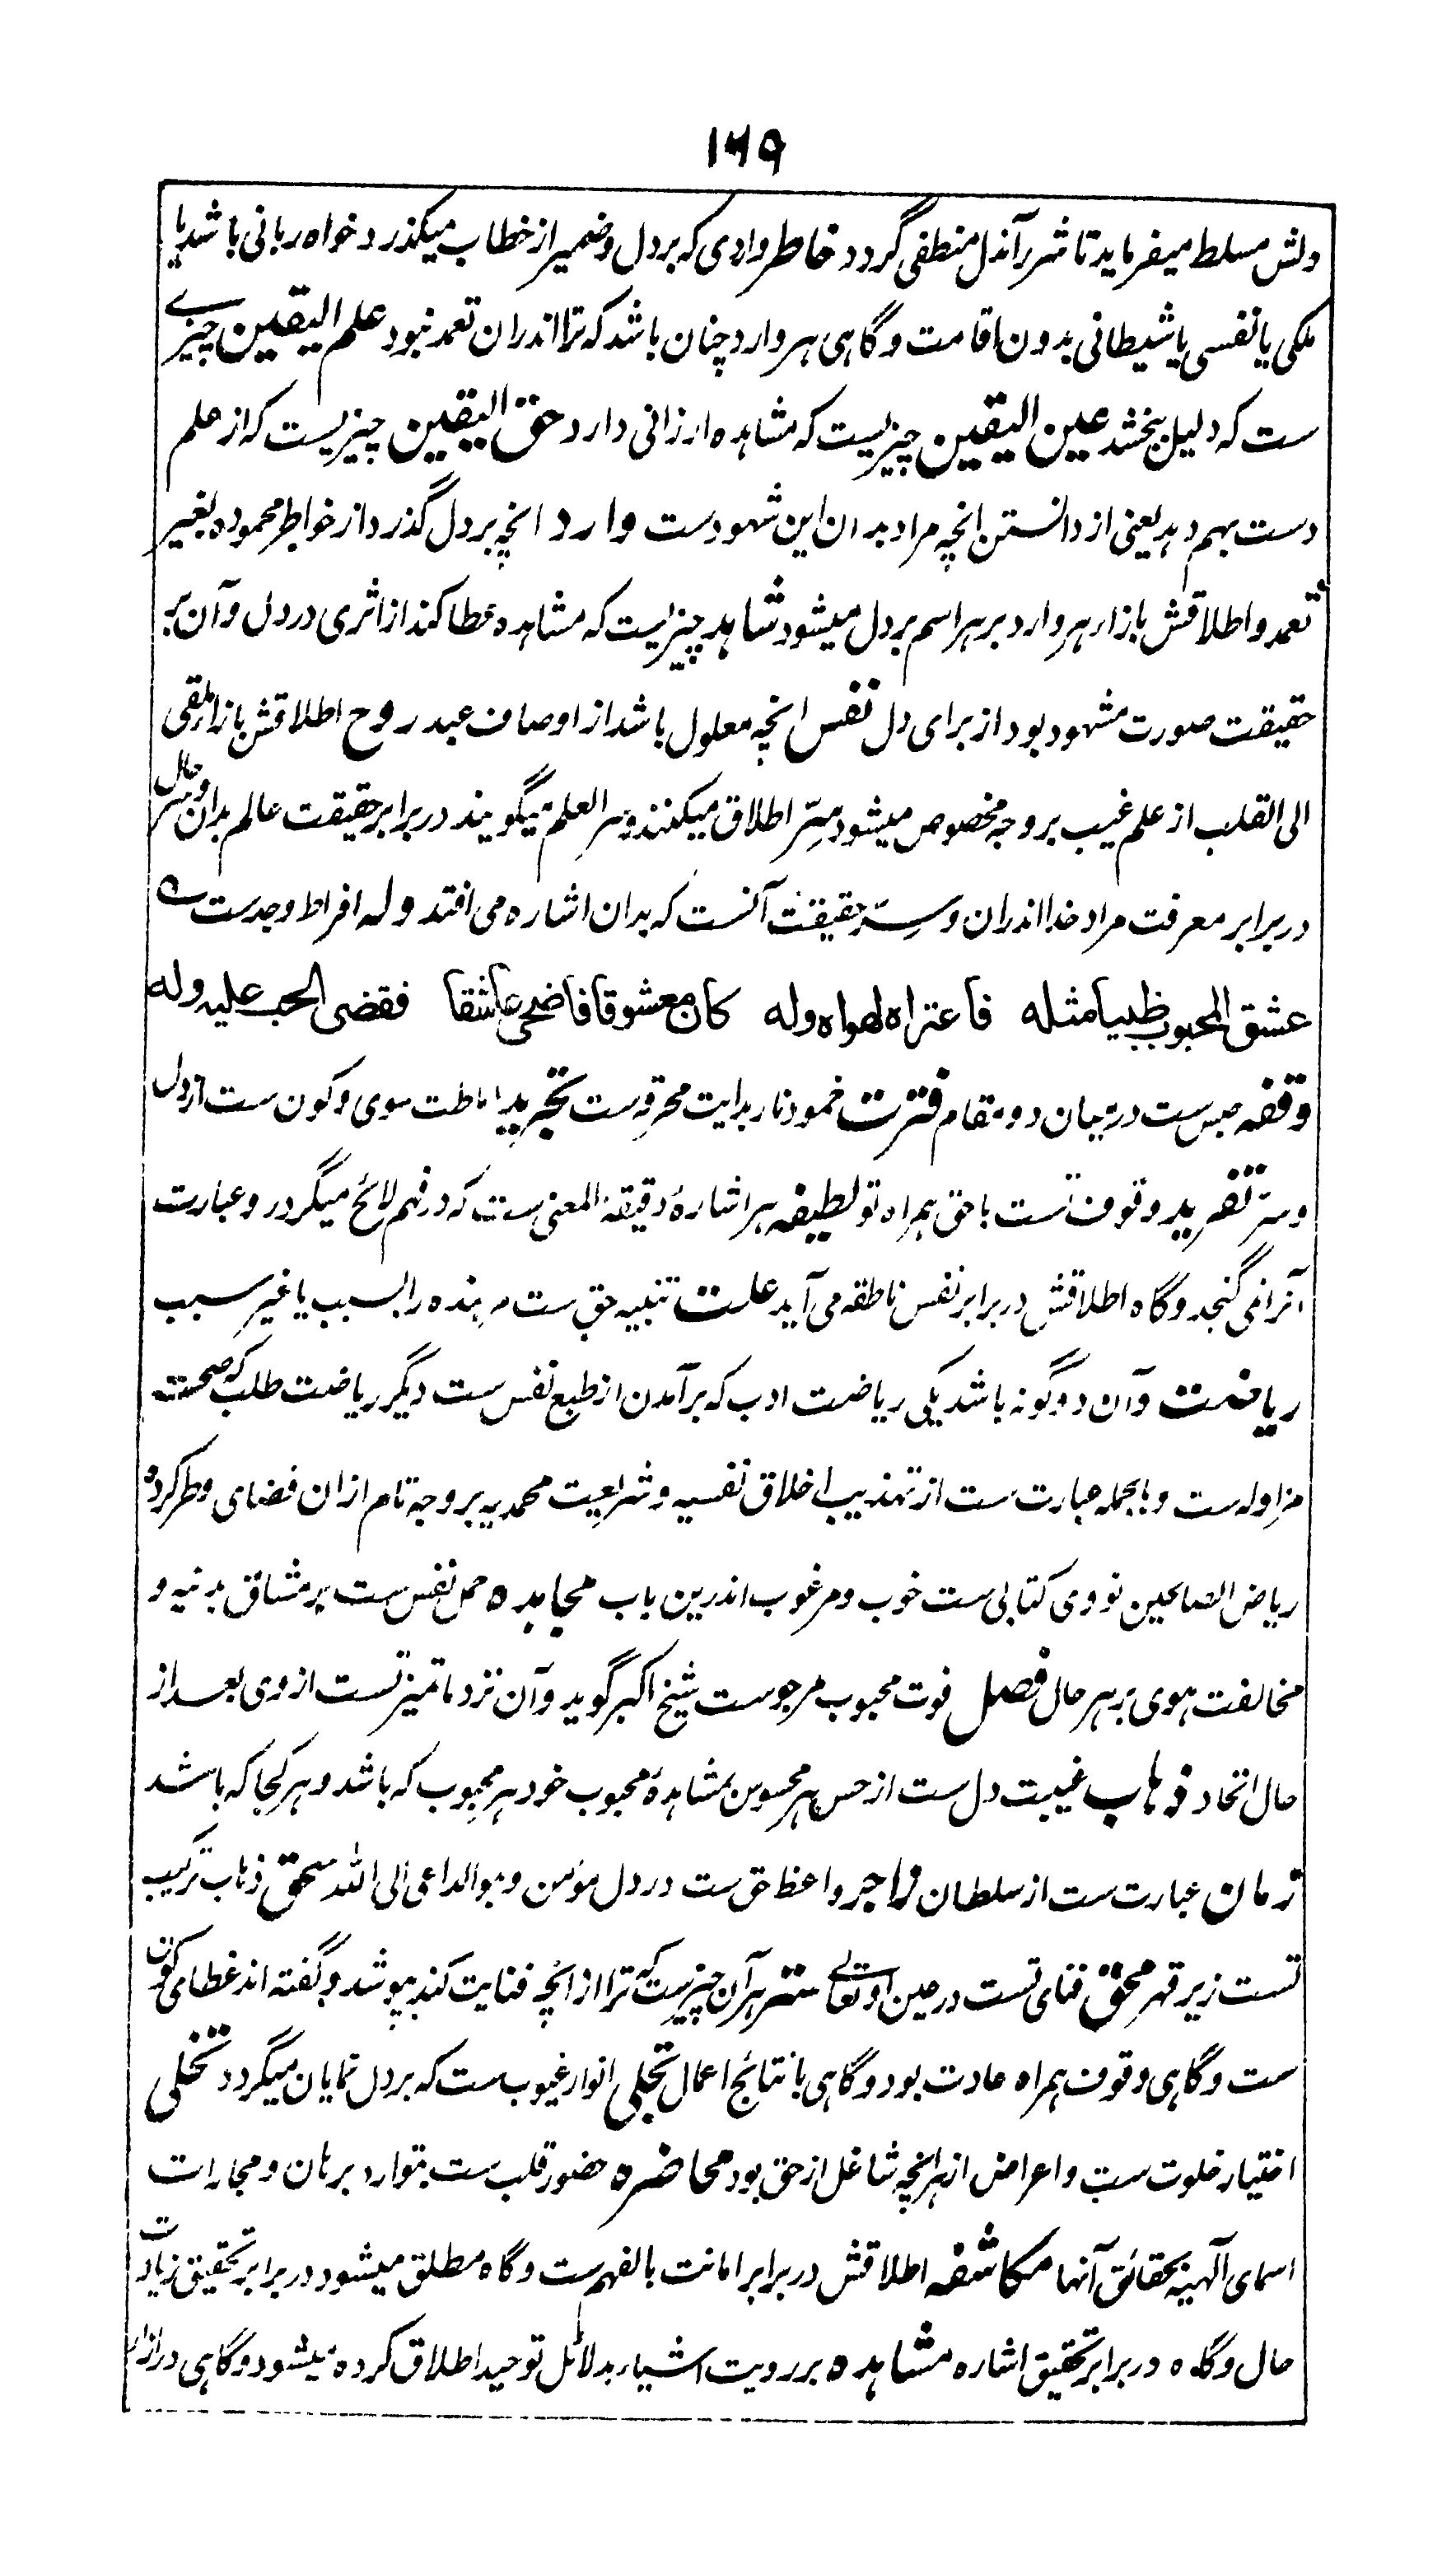 ۱۶۹
دلش مسلط میفرماید تا شرر آندل منطفی گردد خاطر واردی که بر دل وضمیر از خطاب میگذرد خواه ربانی باشد یا
ملکی یا نفسی یا شیطانی بدون اقامت و گاهی هر وارد چنان باشد که ترا اندران تعمد نبود علم الیقین چیزے
ست که دلیل بخشد عین الیقین چیزیست که مشاهده ارزانی دارد حق الیقین چیزیست که از علم
دست بهم دهد یعنی از دانستن انچه مراد بدان این شهودست وارد انچه بر دل گذرد از خواطر محموده بغیر
تعمد و اطلاقش بازار هر وارد بر هر اسم بر دل میشود شاهد چیزیست که مشاهده عطا کند از اثری در دل و آن بر
حقیقت صورت مشهود بود از برای دل نفس انچه معلول باشد از اوصاف عبد روح اطلاقش بازار ملقی
الی القلب از علم غیب بر وجه مخصوص میشود سِرّ اطلاق میکنند و سر العلم میگویند در برابر حقیقت عالم بدان و سر حال
در برابر معرفت مراد خدا اندران و سِرّ حقیقت آنست که بدان اشاره می افتد وله افراط وجدست ے
عشق المحبوب ظبیا مثله فاعتراه لهواه وله کان معشوقا فاضحی عاشقا فقضی الحب علیه وله
وقفه حبس ست درمیان دو مقام فترت خمود نار بدایت محرقه ست تجرید اماطت سوی و کون ست از دل
و سرّ تفرید وقوف تست با حق همراه تو لطیفه هر اشارهٔ دقیقة المعنی ست که در فهم لائح میگردد و عبارت
آنرا نمی گنجد و گاه اطلاقش در برابر نفس ناطقه می آید علت تنبیه حق ست مر بنده را بسبب یا غیر سبب
ریاضت و آن دو گونه باشد یکی ریاضت ادب که برآمدن از طبع نفس ست دیگر ریاضت طلب که صحت
مزاوله ست و بالجمله عبارت ست از تهذیب اخلاق نفسیه و شریعت محمدیه بر وجه تام ازان قضای وطر کرده
ریاض الصالحین نووی کتابی ست خوب و مرغوب اندرین باب مجاهده حمل نفس ست بر مشاق بدنیه و
مخالفت هوی بر هر حال فصل فوت محبوب مرجوست شیخ اکبر گوید و آن نزد ما تمیز تست از وی بعد از
حال اتحاد ذهاب غیبت دل ست از حس هر محسوس بمشاهدهٔ محبوب خود هر محبوب که باشد و هر کجا که باشد
زمان عبارت ست از سلطان زاجر واعظ حق ست در دل مؤمن و هو الداعی الی الله سحق ذهاب ترکیب
تست زیر قهر محق فنای تست در عین او تعالے ستر هر آن چیزیست که ترا از انچه فنایت کند بپوشد و گفته اند غطای کون
ست و گاهی وقوف همراه عادت بود و گاهی با نتائج اعمال تجلی انوار غیوب ست که بر دل نمایان میگردد تخلی
اختیار خلوت ست و اعراض از هر انچه شاغل از حق بود محاضره حضور قلب ست بتوارد برهان و مجارات
اسمای آلهیه بحقائق آنها مکاشفه اطلاقش در برابر امانت بالفهم ست و گاه مطلق میشود در برابر تحقیق زیادت
حال و گاه در برابر تحقیق اشاره مشاهده بر رویت اشیاء بدلائل توحید اطلاق کرده میشود و گاهی در ازار